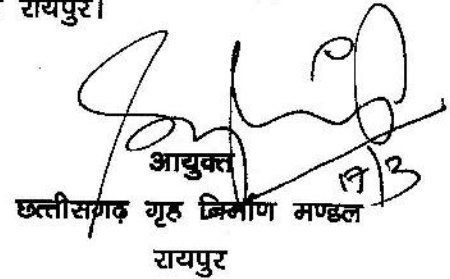 रायपुर।
17/3
आयुक्त
छत्तीसगढ़ गृह निर्माण मण्डल
रायपुर